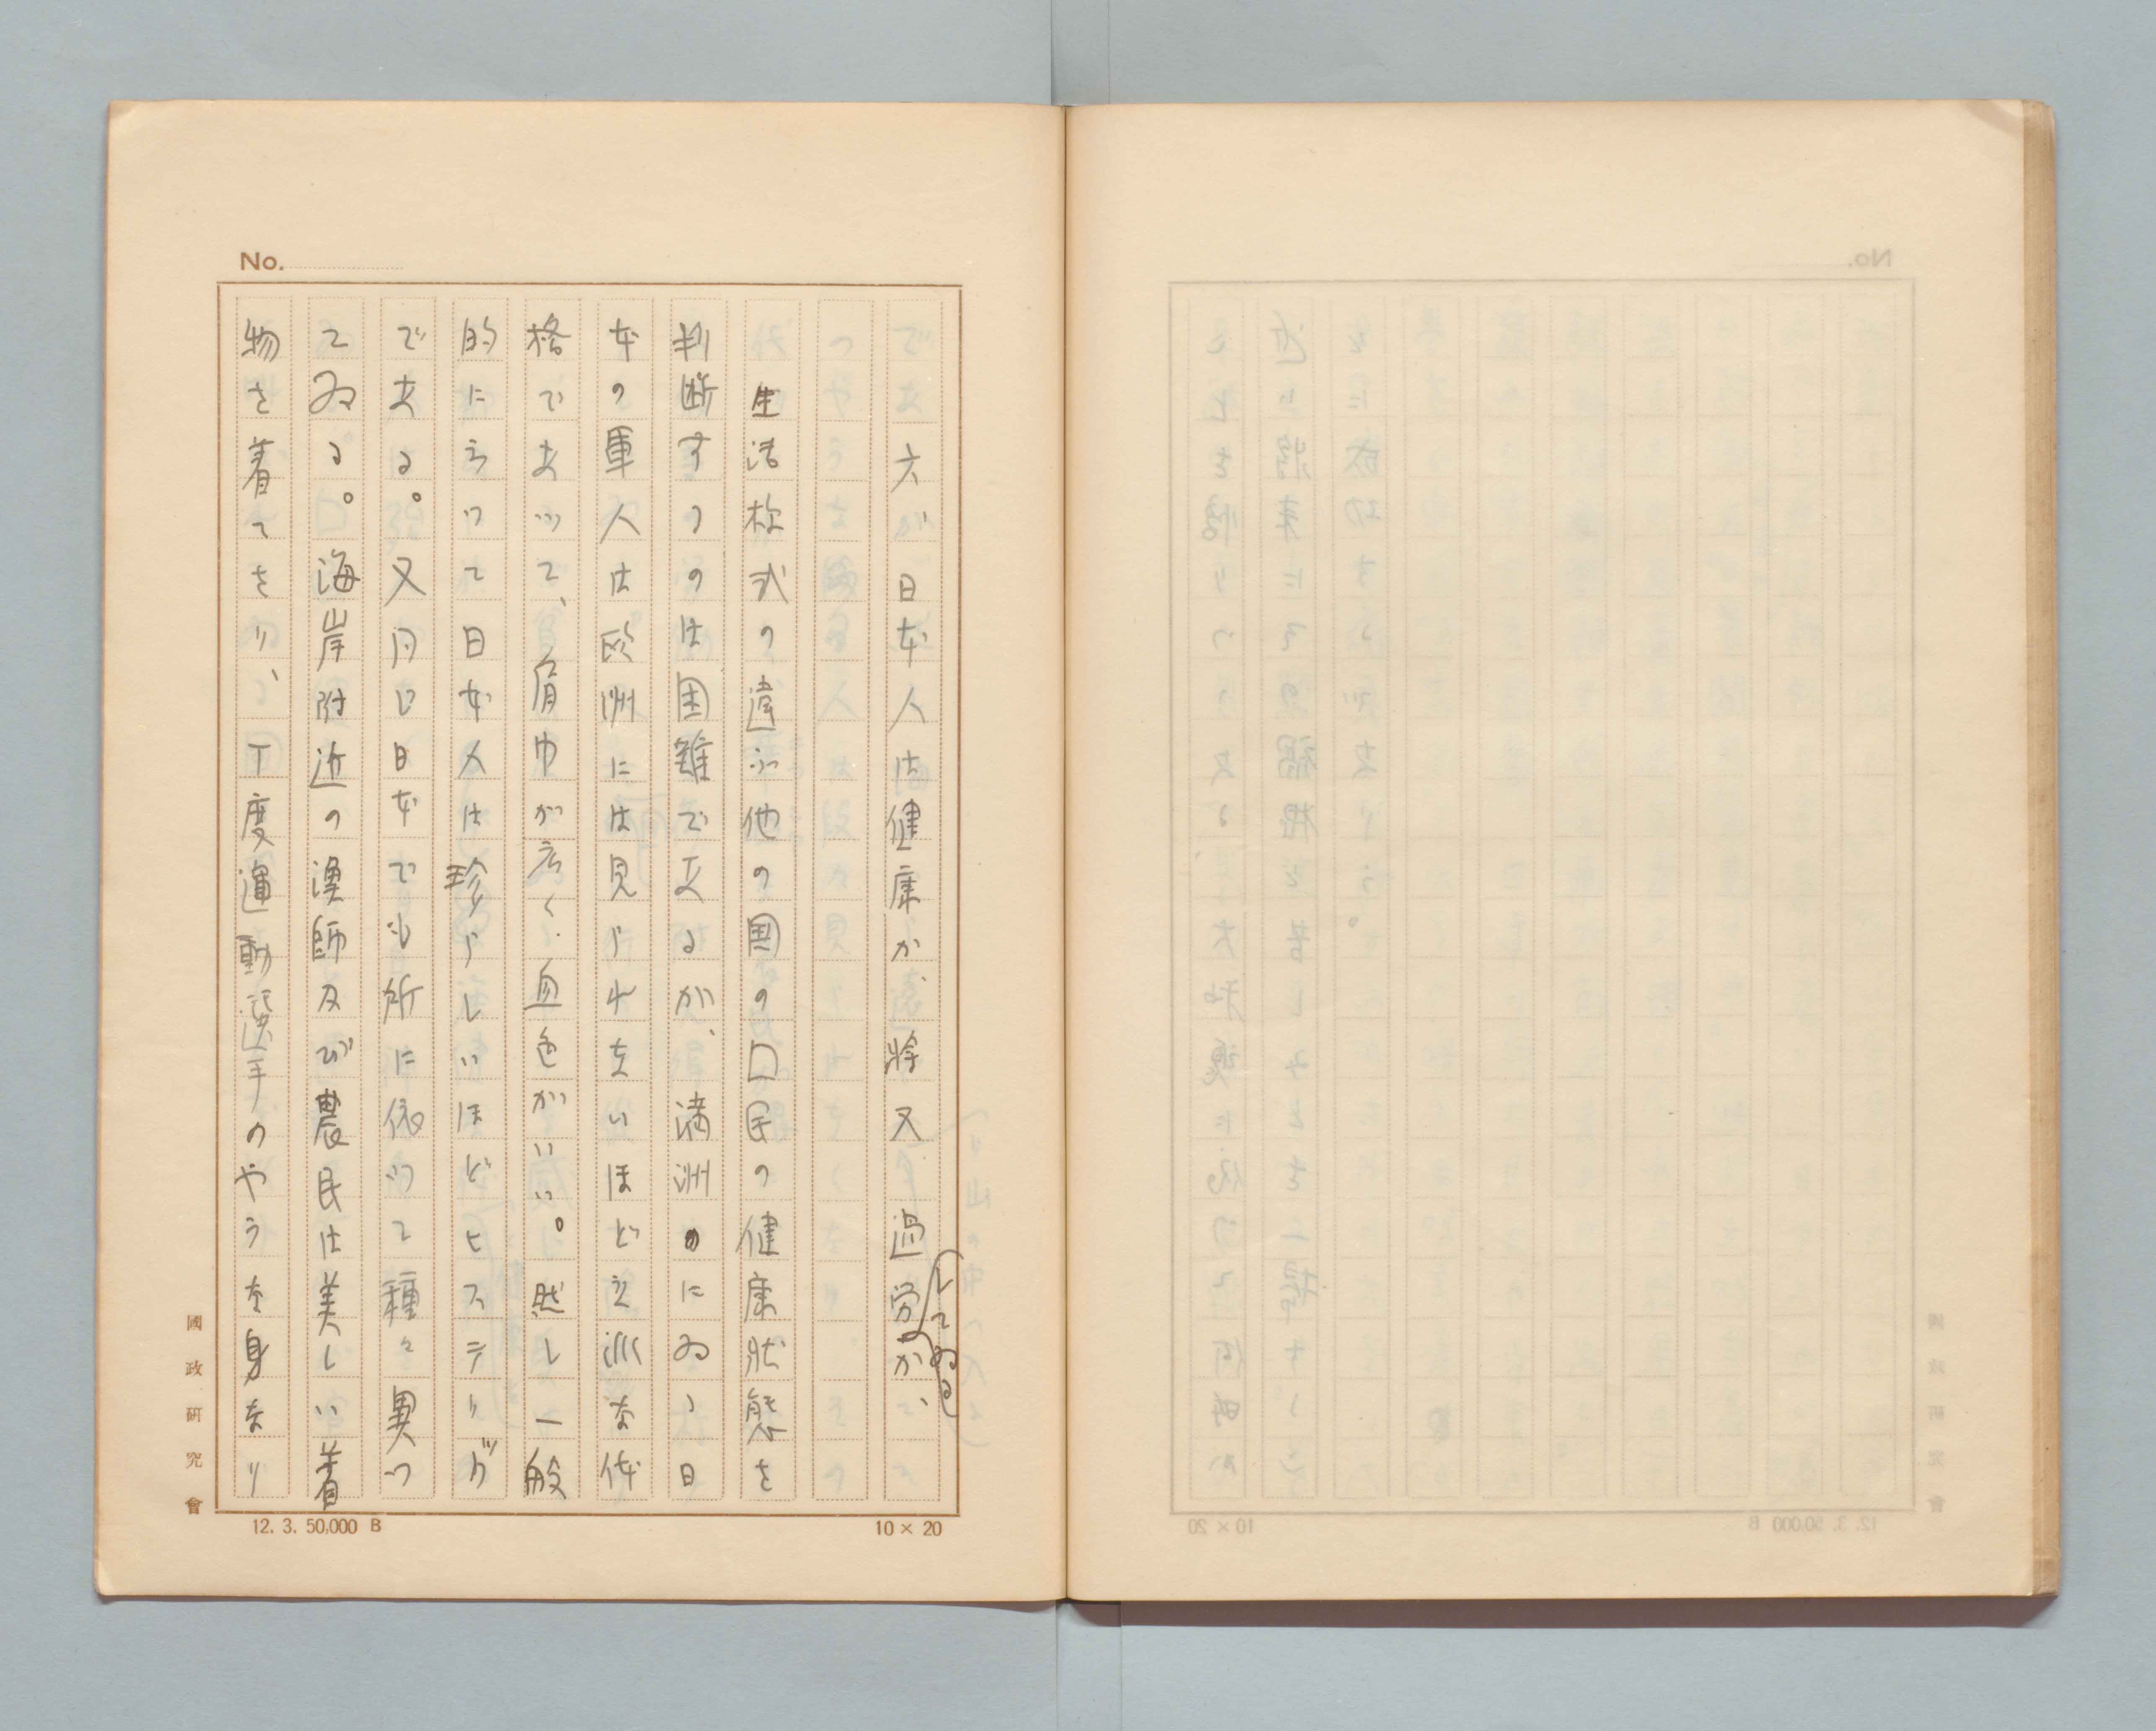 No.
六、日本人は健康か、将又過労か、
してゐる
生活様式の違ふ他の国の囗民の健康状態を
判断するのは困難であるが、満洲のにゐる日
本の軍人は欧洲には見られないほど立派な体
格であつて、肩巾が広く、血色がいい。然し一般
的にいつて日本人は珍らしいほどヒステリック
である。又同じ日本でも所に依つて種々異つ
てゐる。海岸附近の漁師及び農民は美しい着
物を着てをり、丁度運動選手のやうな身なり
國政研究會
12. 3. 50,000 B
10 × 20